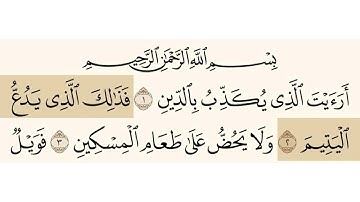 بِسْمِ ٱللَّهِ ٱلرَّحْمَٰنِ ٱلرَّحِيمِ
أَرَءَيْتَ ٱلَّذِى يُكَذِّبُ بِٱلدِّينِ ١ فَذَٰلِكَ ٱلَّذِى يَدُعُّ
ٱلْيَتِيمَ ٢ وَلَا يَحُضُّ عَلَىٰ طَعَامِ ٱلْمِسْكِينِ ٣ فَوَيْلٌ